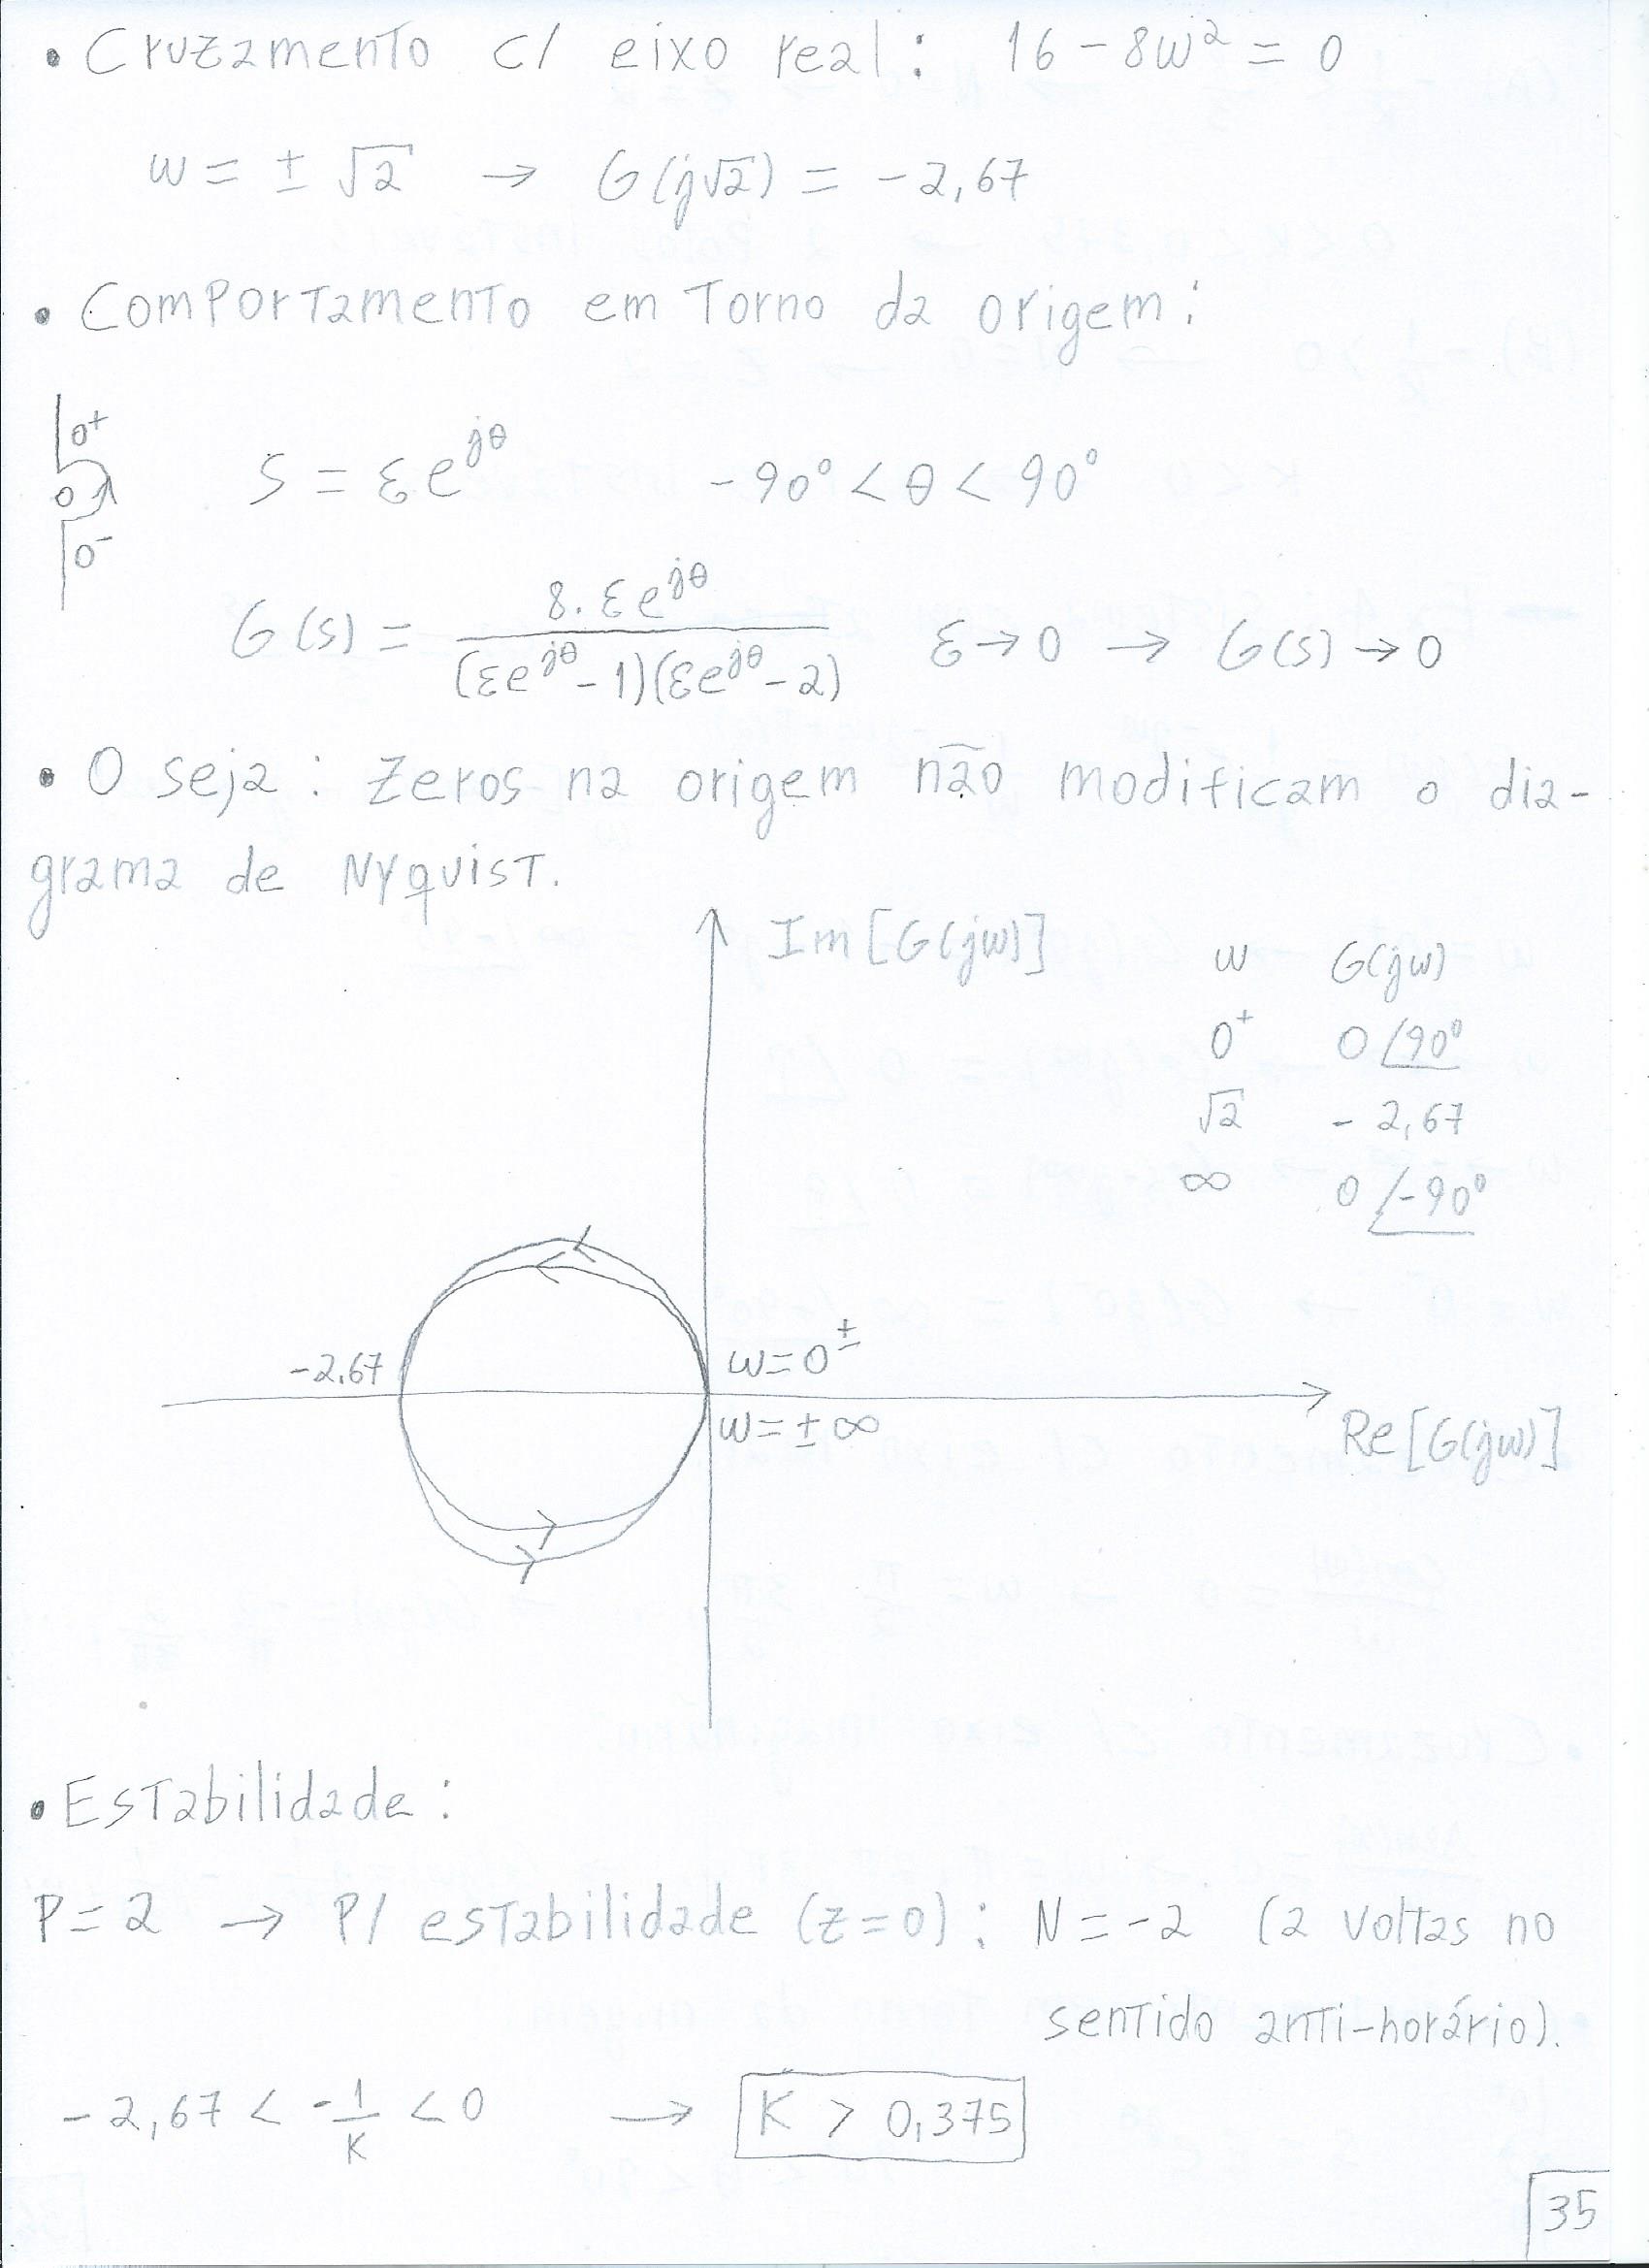 • Cruzamento c/ eixo real: 16 - 8w² = 0
w = ± √2 → G(j√2) = -2,67
• Comportamento em torno da origem:
0+
0
0-
s = εe^jθ -90° < θ < 90°
G(s) = 8.εe^jθ / (εe^jθ - 1)(εe^jθ - 2) ε→0 → G(s)→0
• O seja: zeros na origem não modificam o dia-
grama de Nyquist.
Im[G(jw)]
w G(jw)
0+ 0∠90°
√2 -2,67
∞ 0∠-90°
-2,67
w=0±
w=±∞
Re[G(jw)]
• Estabilidade:
P=2 → P/ estabilidade (z=0): N=-2 (2 voltas no
sentido anti-horário).
-2,67 < -1/K < 0 → K > 0,375
35